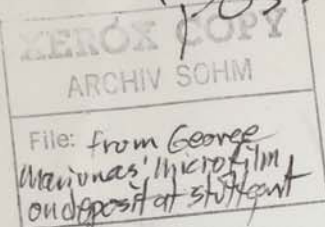 XEROX COPY
ARCHIV SOHM
File: from George
Maciunas' microfilm
on deposit at Stuttgart